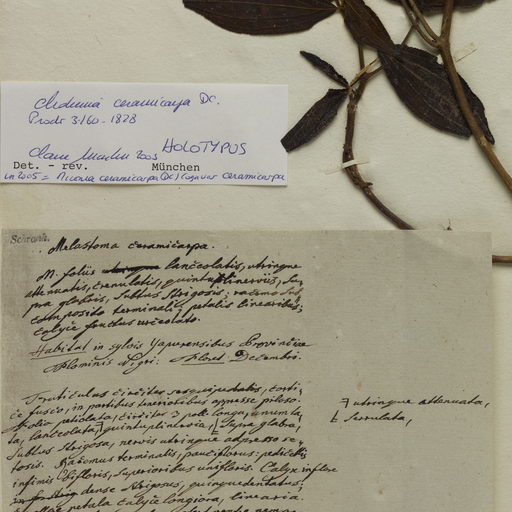 Clidemia ceramicarpa DC.
Prodr 3:160 - 1828
HOLOTYPUS
2005
Det. - rev. München
in 2005 = Miconia ceramicarpa (DC) Cogniaux ceramicarpa
Schrank.
Melastoma ceramicarpa.
M. foliis lanceolatis, utrinque
attenuatis, crenulatis, quintuplinerviis, su-
pra glabris, subtus strigosis; racemo
composito terminali; petalis linearibus;
calyce fructus urceolato.
Habitat in sylvis Yapurensibus Provinciae
Fluminis Nigri: Floret Decembri.
Fruticulus circiter sesquipedalis, corti-
ce fusco, in partibus tenerioribus appresse piloso.
Folia petiolata, circiter 3 poll. longa, acumina-
ta, lanceolata, quintuplinervia, supra glabra,
subtus strigosa, nervis utrinque adpresso se-
tosis. Racemus terminalis, pauciflorus: pedicellis
infimis bifloris, superioribus unifloris. Calyx inflore
dense strigosus, quinquedentatus;
petala calyce longiora, linearia.
† utrinque attenuata,
t serrulata,